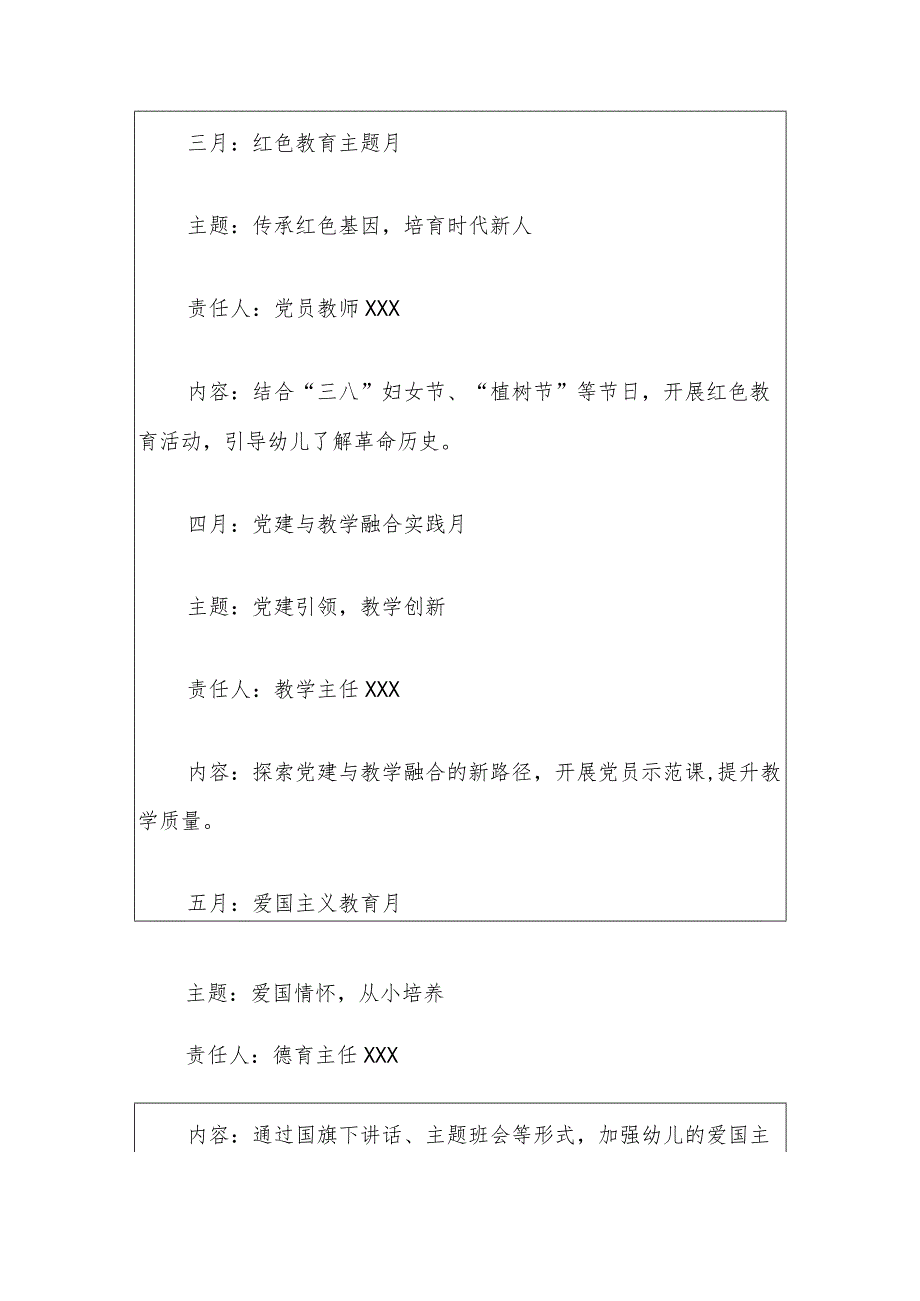 三月：红色教育主题月
主题：传承红色基因，培育时代新人
责任人：党员教师XXX
内容：结合“三八”妇女节、“植树节”等节日，开展红色教
育活动，引导幼儿了解革命历史。
四月：党建与教学融合实践月
主题：党建引领，教学创新
责任人：教学主任XXX
内容：探索党建与教学融合的新路径，开展党员示范课,提升教
学质量。
五月：爱国主义教育月
主题：爱国情怀，从小培养
责任人：德育主任XXX
内容：通过国旗下讲话、主题班会等形式，加强幼儿的爱国主